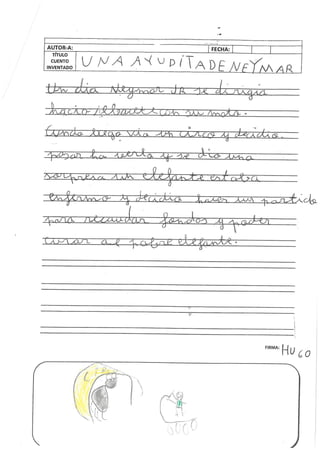 AUTOR-A: FECHA:
TÍTULO CUENTO INVENTADO UNA AYUDITA DE NEYMAR
Un dia Neymar JR se dirigia
hacia Albacete con su moto.
Cundo luego vio un circo y decidio
pasar ha verlo y se dio una
sorpresa un elefante estaba
enfermo y decidio hacer un partido
para recaudar fondos y poder
curar al pobre elefante.
FIRMA: HUGO